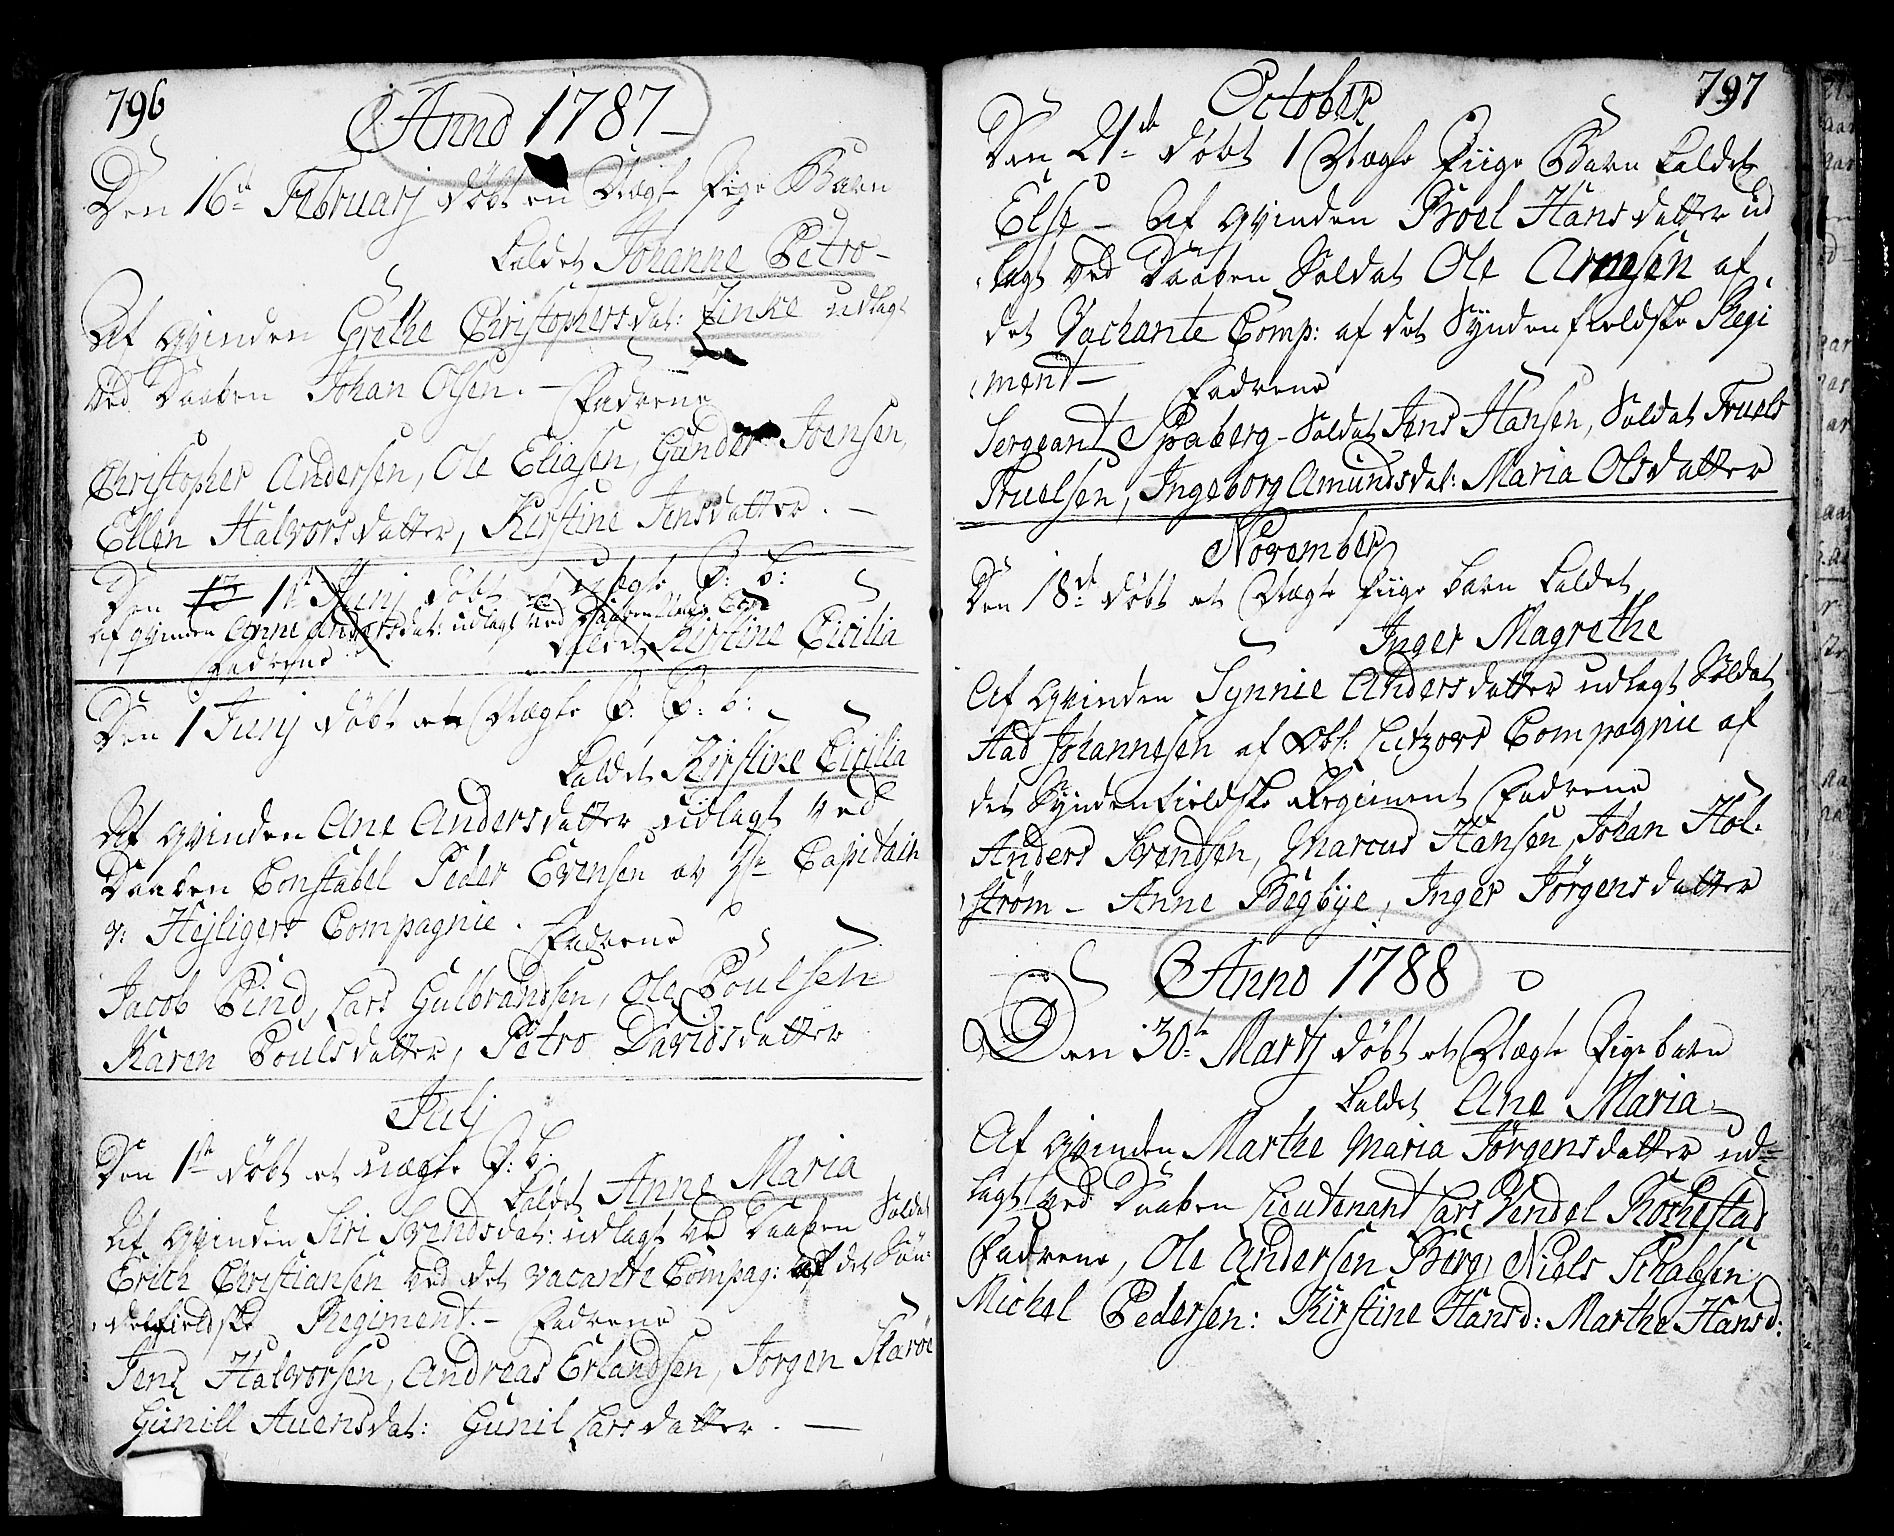 796
Anno 1787
Den 16de Februarj döbt en Uægte Pige Barn
kaldet Johanne Petro
Af qvinden Grethe Christophersdat: Finke udlagt
ved Daaben Johan Olsen. - Fadrene
Christopher Andersen, Ole Eliasen, Gunder Ivensen,
Ellen Halvorsdatter, Kirstine Jensdatter. -
Den 1te Junj döbt et uægte P: b:
af qvinden Anne Andersdat: udlagt ved Daaben
kaldet Kirstine Cicilia
Fadrene
Den 1 Junj döbt et Uægte P: b:
kaldet Kirstine Cicilia
Af qvinden Ane Andersdatter udlagt ved
Daaben Constabel Peder Evensen av Capitain
v: Hejligers Compagnie. Fadrene
Jacob Pind, Lars Gulbrandsen, Ole Poulsen
Karen Poulsdatter, Petro Davidsdatter
Julj
Den 1te döbt et uægte P: b:
kaldet Anne Maria
Af qvinden Siri Svendsdat: udlagt ved Daaben Soldat
Erich Christiansen ved det vacante Compag: af det Sön
denfieldske Regiment. - Fadrene
Jens Halvorsen, Andreas Erlandsen, Jorgen Skaröe
Gunill Auensdat: Gunil Larsdatter. -
797
October
Den 21de döbt 1 Uægte Piige Barn kaldet
Else - Af qvinden Boel Hansdatter ud
lagt ved Daaben Soldat Ole Arnesen af
det Vachante Comp: af det Syndenfieldske Regi
ment - Fadrene
Sergeant Spaberg - Soldat Jens Hansen, Soldat Truels
Truelsen, Ingeborg Amundsdat: Maria Olsdatter
November
Den 18de döbt et Uægte Piige barn kaldet
Inger Magrethe
Af qvinden Synnie Andersdatter udlagt Soldat
Aad Johannesen af Obl: Lutzows Compagnie af
det Syndenfieldske Regiment Fadrene
Anders Svendsen, Marcus Hansen, Johan Hol-
ström - Anne Begbye, Inger Jörgensdatter
Anno 1788
Den 30te Martj döbt et Uægte Pige barn
kaldet Ane Maria
Af qvinden Marthe Maria Jörgensdatter ud=
lagt ved Daaben Lieutenant Lars Vendel Rochestad
Fadrene, Ole Andersen Berg, Niels Schabsen,
Michel Pedersen: Kirstine Hansd: Marthe Hansd: